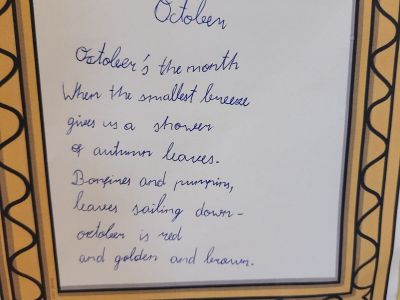 October
October's the month
When the smallest breeze
gives us a shower
of autumn leaves.
Bonfires and pumpkins,
leaves sailing down -
october is red
and golden and brown.